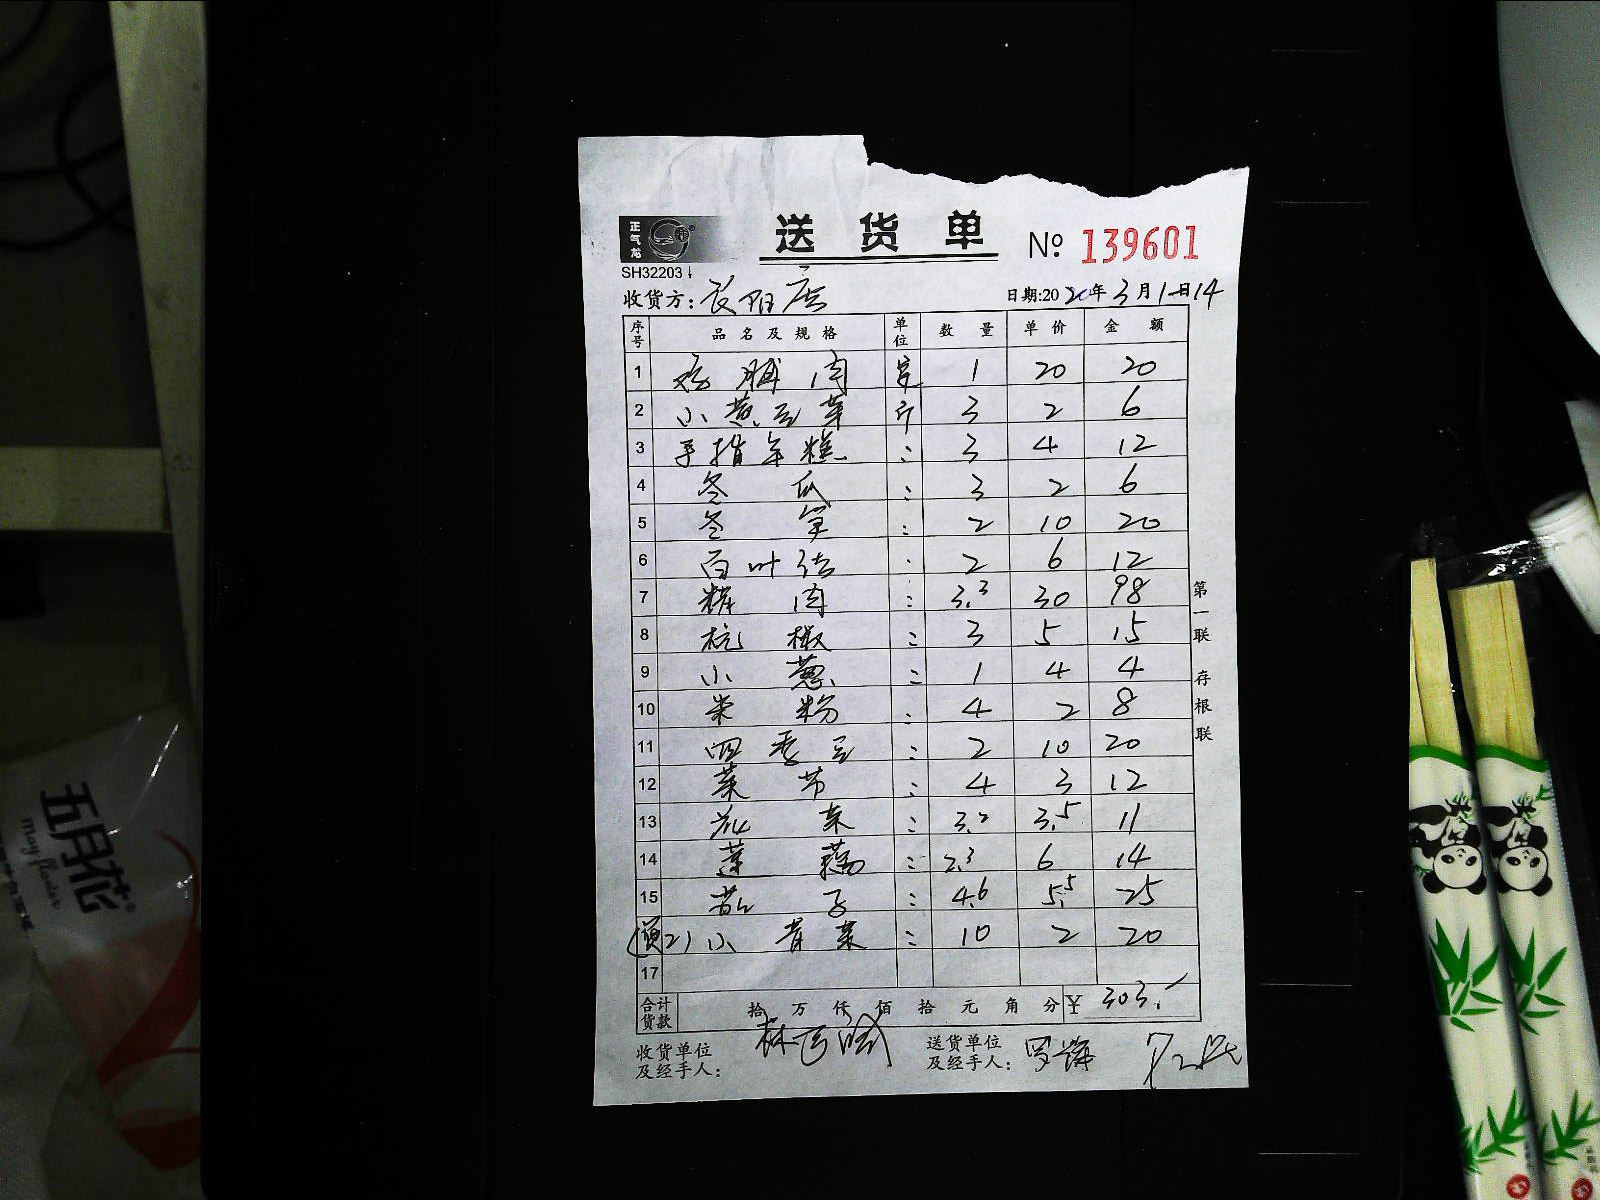 正气龙
送货单
№ 139601
SH32203
收货方: 长阳店 日期:2020年3月1日14
序号 品名及规格 单位 数量 单价 金额
1 鸡脯肉 1 20 20
2 小黄豆芽 斤 3 2 6
3 手指年糕 : 3 4 12
4 冬瓜 : 3 2 6
5 冬笋 : 2 10 20
6 百叶结 : 2 6 12
7 精肉 : 3.3 30 98
8 杭椒 : 3 5 15
9 小葱 : 1 4 4
10 米粉 : 4 2 8
11 四季豆 : 2 10 20
12 莱芥 : 4 3 12
13 花菜 : 3.2 3.5 11
14 莲藕 : 2.3 6 14
15 茄子 : 4.6 5.5 25
小青菜 : 10 2 20
17
合计货款 拾万仟佰拾元角分 ¥ 303.
第一联 存根联
收货单位及经手人: 送货单位及经手人:
五月花
May flower